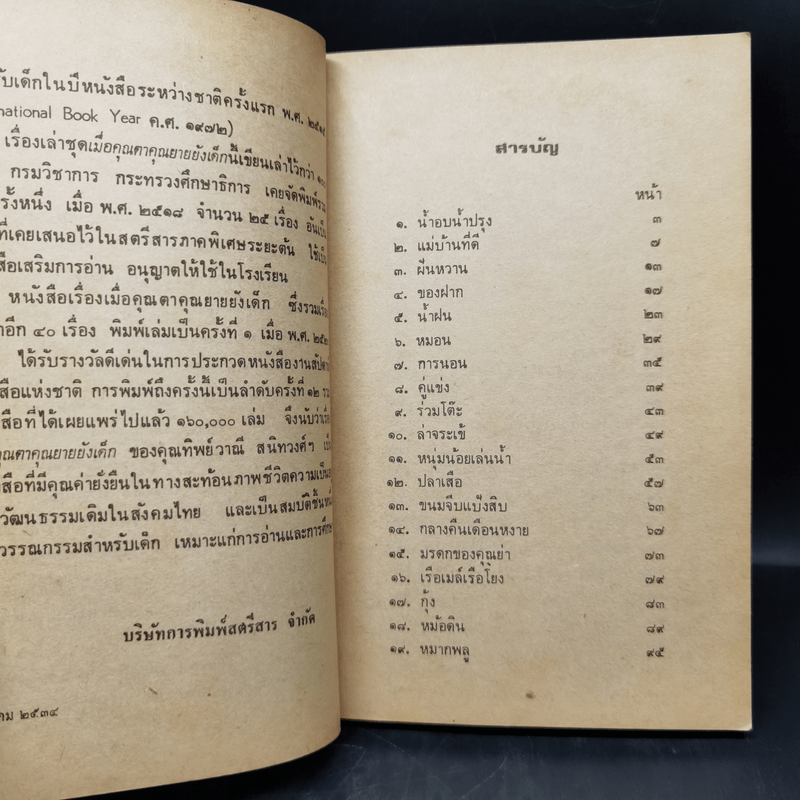 รับเด็กในปีหนังสือระหว่างชาติครั้งแรก พ.ศ. ๒๕๑๕
national Book Year ค.ศ. ๑๙๗๒)
เรื่องเล่าชุดเมื่อคุณตาคุณยายยังเด็กนี้เขียนเล่าไว้กว่า
กรมวิชาการ กระทรวงศึกษาธิการ เคยจัดพิมพ์รวม
รั้งหนึ่ง เมื่อ พ.ศ. ๒๕๑๘ จำนวน ๒๕ เรื่อง อันเป็น
ที่เคยเสนอไว้ในสตรีสารภาคพิเศษระยะต้น ใช้เป็น
สือเสริมการอ่าน อนุญาตให้ใช้ในโรงเรียน
หนังสือเรื่องเมื่อคุณตาคุณยายยังเด็ก ซึ่งรวมเรื่อง
าอีก ๔๐ เรื่อง พิมพ์เล่มเป็นครั้งที่ ๑ เมื่อ พ.ศ.
ได้รับรางวัลดีเด่นในการประกวดหนังสืองานสัปดาห์
สือแห่งชาติ การพิมพ์ถึงครั้งนี้เป็นลำดับครั้งที่ ๑๒ รวม
สือที่ได้เผยแพร่ไปแล้ว ๑๖๐,๐๐๐ เล่ม จึงนับว่าเรื่อง
คุณตาคุณยายยังเด็ก ของคุณทิพย์วาณี สนิทวงศ์ฯ เป็น
สือที่มีคุณค่ายั่งยืนในทางสะท้อนภาพชีวิตความเป็นอยู่
วัฒนธรรมเดิมในสังคมไทย และเป็นสมบัติชิ้นหนึ่ง
วรรณกรรมสำหรับเด็ก เหมาะแก่การอ่านและการศึกษา
บริษัทการพิมพ์สตรีสาร จำกัด
คม ๒๕๓๔
สารบัญ
หน้า
๑. น้ำอบน้ำปรุง ๓
๒. แม่บ้านที่ดี ๗
๓. ฝันหวาน ๑๓
๔. ของฝาก ๑๗
๕. น้ำฝน ๒๓
๖. หมอน ๒๙
๗. การนอน ๓๕
๘. คู่แข่ง ๓๙
๙. ร่วมโต๊ะ ๔๓
๑๐. ล่าจระเข้ ๔๙
๑๑. หนุ่มน้อยเล่นน้ำ ๕๓
๑๒. ปลาเสือ ๕๗
๑๓. ขนมจีบแป้งสิบ ๖๓
๑๔. กลางคืนเดือนหงาย ๖๗
๑๕. มรดกของคุณย่า ๗๓
๑๖. เรือเมล์เรือโยง ๗๙
๑๗. กุ้ง ๘๓
๑๘. หม้อดิน ๘๙
๑๙. หมากพลู ๙๕